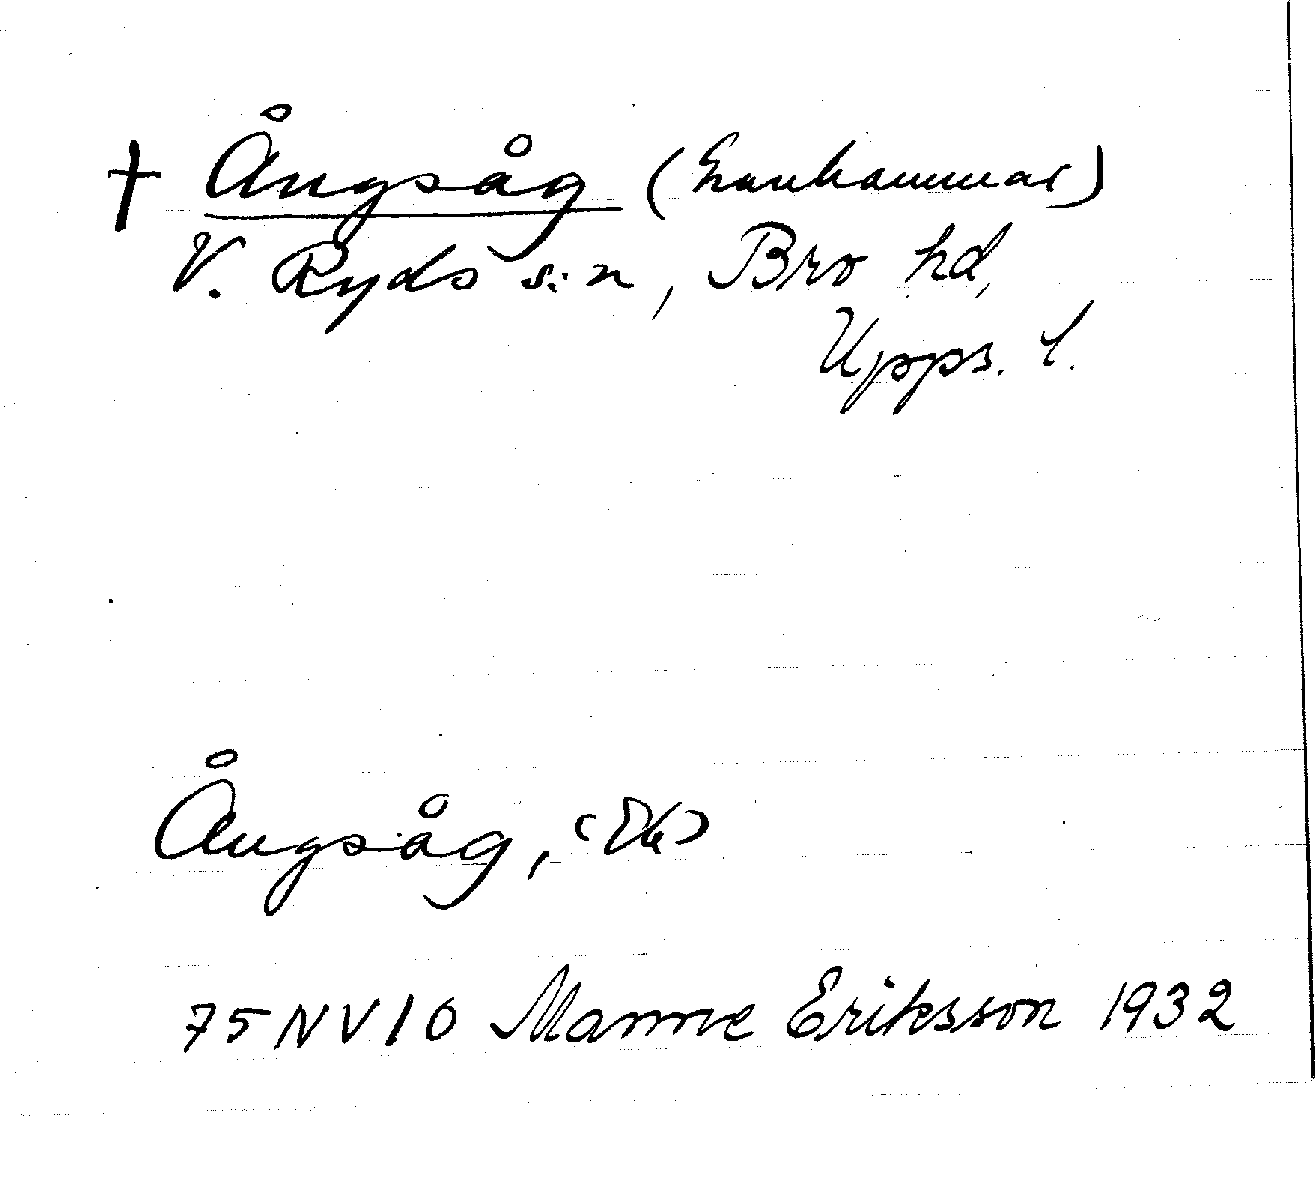 † Ångsåg (Lennhammar)
V. Ryds s:n, Bro hd,
Upps. l.
Ångsåg,
75 NV 10 Manne Eriksson 1932